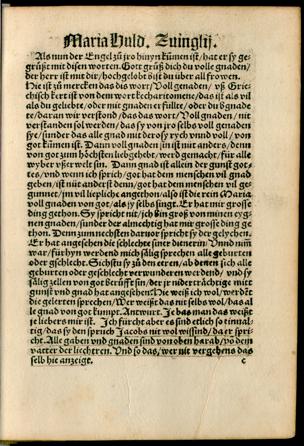 Maria Huld. Zuinglij.
Als nun der Engel zů jro hinyn kůmen ist/ hat er sy ge-
grůßt mit disen worten. Gott grůß dich du volle gnaden/
der herr ist mit dir/ hochgelobt bist du über all frowen.
Hie ist zů mercken das dz wort/ Voll gnaden/ uß Grie-
chisch kert ist von dem wort kecharitomene/ das ist als vil
als du geliebte/ oder mit gnaden erfüllte/ oder du bgnade
te/ daran wir verstond/ das das wort/ Voll gnaden/ nit
verstanden sol werden/ das sy von jro selbs voll gnaden
sye/ sunder das alle gnad mit dero sy rych vnnd voll/ von
got kůmen ist. Dann voll gnaden sin ist nüt anders/ denn
von got zum höchsten liebgehebt/ werd gemacht/ für alle
wyber vßer welt sin. Dann gnad ist allein der gunst got-
tes/ vnd wenn ich sprich/ got hat dem menschen vil gnad
geben/ ist nüt anderst denn/ got hat dem menschen vil ge
gunnet/ jm vil liepliche angethon/ also ist die rein Maria
voll gnaden von got/ als sy selbs singt. Er hat mir grosse
ding gethon. Sy spricht nit/ ich bin groß von minen eyg-
nen gnaden/ sunder der almechtig hat mir grosse ding ge
thon. Denn zum nechsten daruor spricht sy der gelychen.
Er hat angesehen die schlechte siner dienerin/ Vnnd nim̃
war/ fürhyn werdend mich sälig sprechen alle geburten
oder gschlecht. Sichstu sy zů der eeren/ ab denen sich alle
geburten oder geschlecht verwunderen werdend/ vnd sy
sälig zellen von got berůfft sin/ der jr niderträchtige mitt
gunst vnd gnad hat angesehen. Die weiß ich wol/ werdẽt
die gelerten sprechen/ Wer weißt das nit selbs wol/ das al
le gnad von got kumpt. Antwurt. Je bas man das weißt
je liebers mir ist. Ich fürcht aber es sind etlich so tinnal-
tig/ das sy den spruch Jacobs nit wol wissind/ da er spri-
cht. Alle gaben vnd gnaden sind von oben harab/ võ dem
vatter der liechteren. Vnd so das/ wer nit vergebens das
selb hie anzeigt.
c